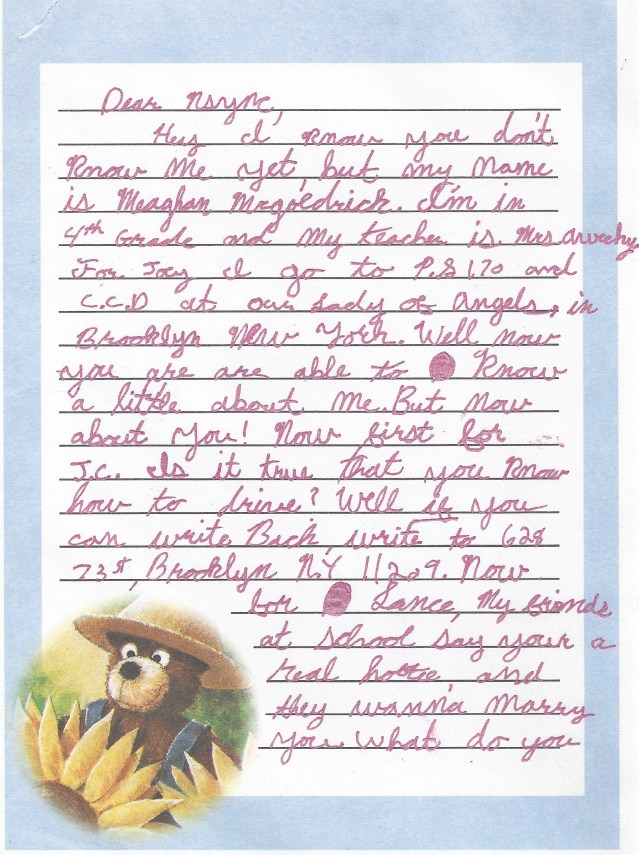 Dear Nsync,
Hey I know you don't
know me yet, but my name
is Meaghan Mcgoldrick. I'm in
4th Grade and my teacher is Mrs
For Joey I go to P.S 170 and
C.C.D at our Lady of Angels, in
Brooklyn New York. Well now
you are are able to know
a little about me. But now
about you! Now first for
J.C. Is it true that you know
how to drive? Well if you
can write Back, write to 628
73st, Brooklyn NY 11209. Now
for Lance, My friends
at school say your a
real hottie, and
they wanna marry
you. What do you